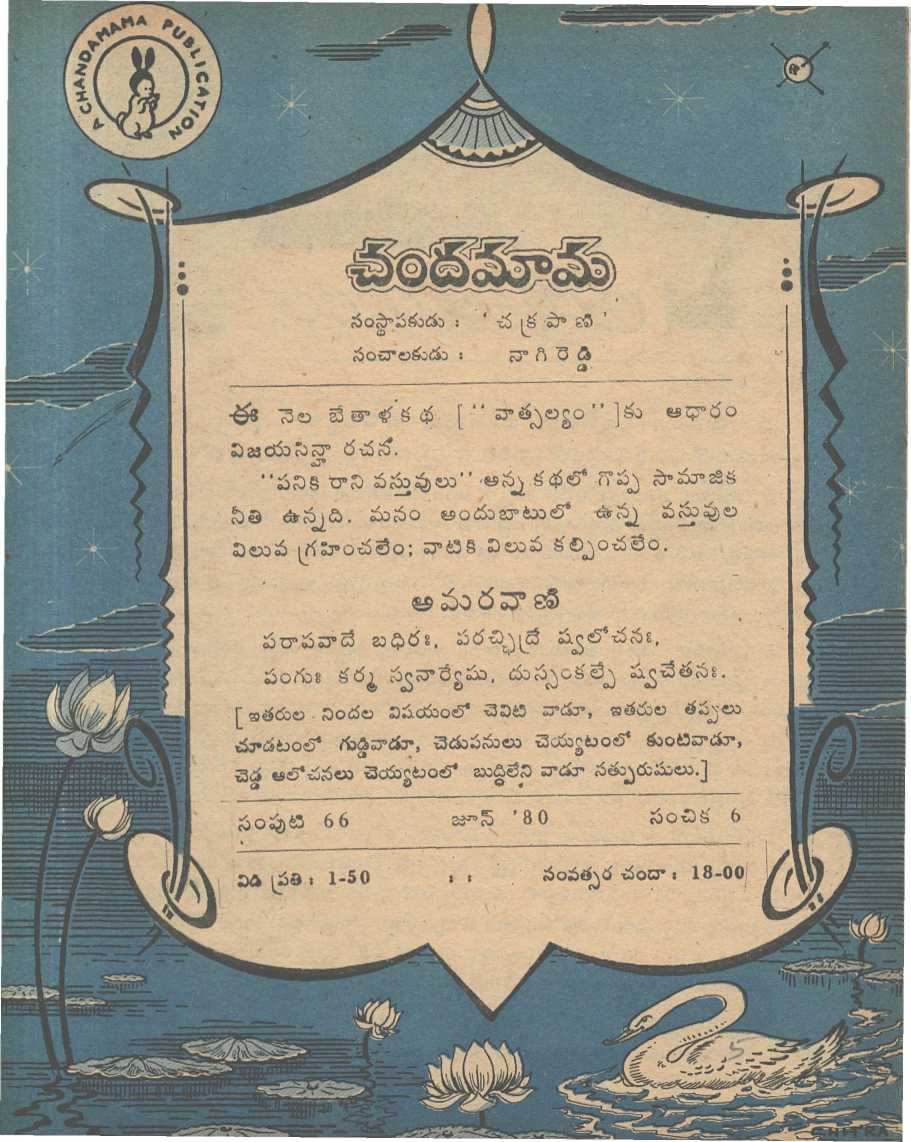 A CHANDAMAMA PUBLICATION
చందమామ
సంస్థాపకుడు : ' చక్రపాణి '
సంచాలకుడు : నాగిరెడ్డి
ఈ నెల బేతాళకథ [ '' వాత్సల్యం'' ]కు ఆధారం
విజయసిన్హా రచన.
''పనికి రాని వస్తువులు'' అన్న కథలో గొప్ప సామాజిక
నీతి ఉన్నది. మనం అందుబాటులో ఉన్న వస్తువుల
విలువ గ్రహించలేం; వాటికి విలువ కల్పించలేం.
అమరవాణి
పరాపవాదే బధిరః, పరచ్ఛిద్రే ష్వలోచనః,
పంగుః కర్మ స్వనార్యేషు, దుస్సంకల్పే ష్వచేతనః.
[ ఇతరుల నిందల విషయంలో చెవిటి వాడూ, ఇతరుల తప్పులు
చూడటంలో గుడ్డివాడూ, చెడుపనులు చెయ్యటంలో కుంటివాడూ,
చెడ్డ ఆలోచనలు చెయ్యటంలో బుద్ధిలేని వాడూ సత్పురుషులు.]
సంపుటి 66 జూన్ '80 సంచిక 6
విడి ప్రతి : 1-50 : : సంవత్సర చందా : 18-00
CHITRA